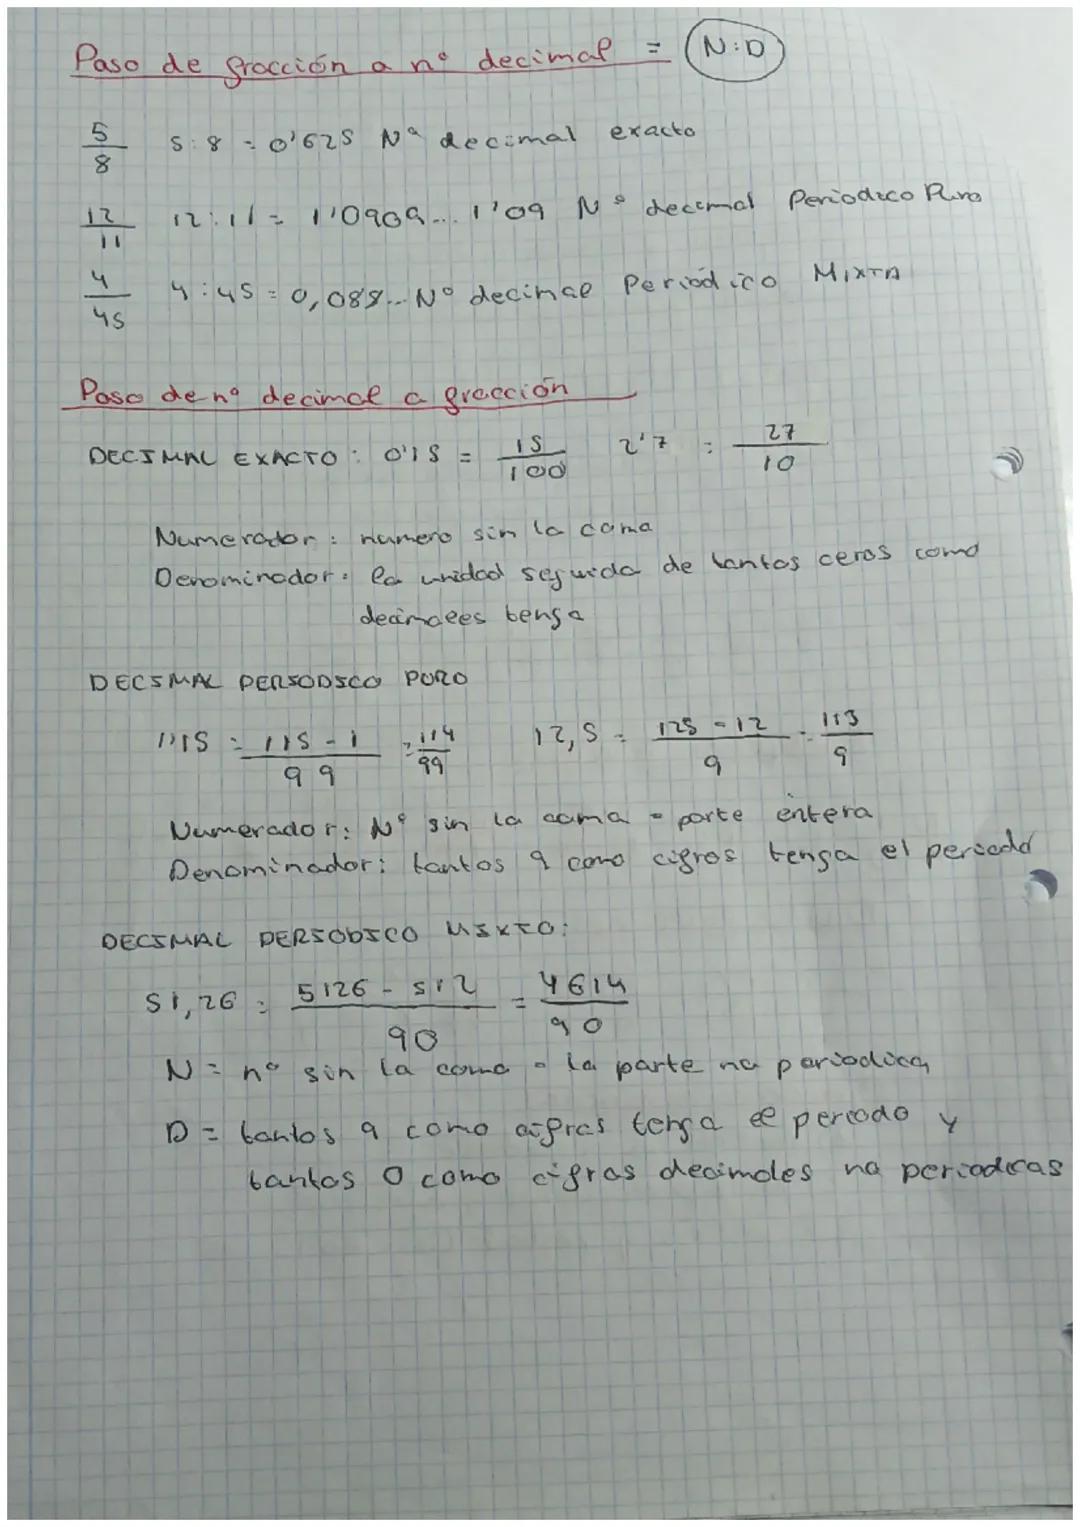 Paso de fracción a nº decimal = N:D
5/8 5:8 = 0'625 Nª decimal exacto
12/11 12:11 = 1'0909... 1'09 Nº decimal Periodico Puro
4/45 4:45 = 0,088... Nº decimal Periódico MIXTA
Paso de nº decimal a fracción
DECIMAL EXACTO: 0'15 = 15/100 2'7 = 27/10
Numerador: numero sin la coma
Denominador: la unidad seguida de tantos ceros como
decimales tenga
DECIMAL PERIODICO PURO
1'15 = 115-1/99 = 114/99 12,5 = 125-12/9 = 113/9
Numerador: Nº sin la coma - parte entera
Denominador: tantos 9 como cifras tenga el periodo
DECIMAL PERIODICO MIXTO:
51,26 = 5126-512/90 = 4614/90
N = nº sin la coma - la parte no periodica
D = tantos 9 como cifras tenga el periodo y
tantos 0 como cifras decimales no periodicas